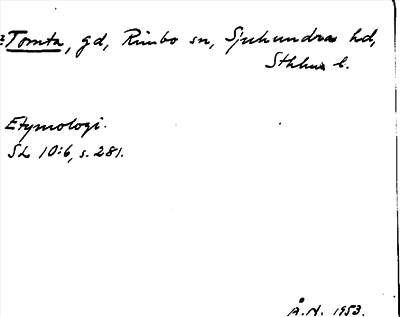 Tomta, gd, Rimbo sn, Sjuhundra hd,
Sthlms l.
Etymologi.
SL 10:6, s. 281.
Å.N. 1953.